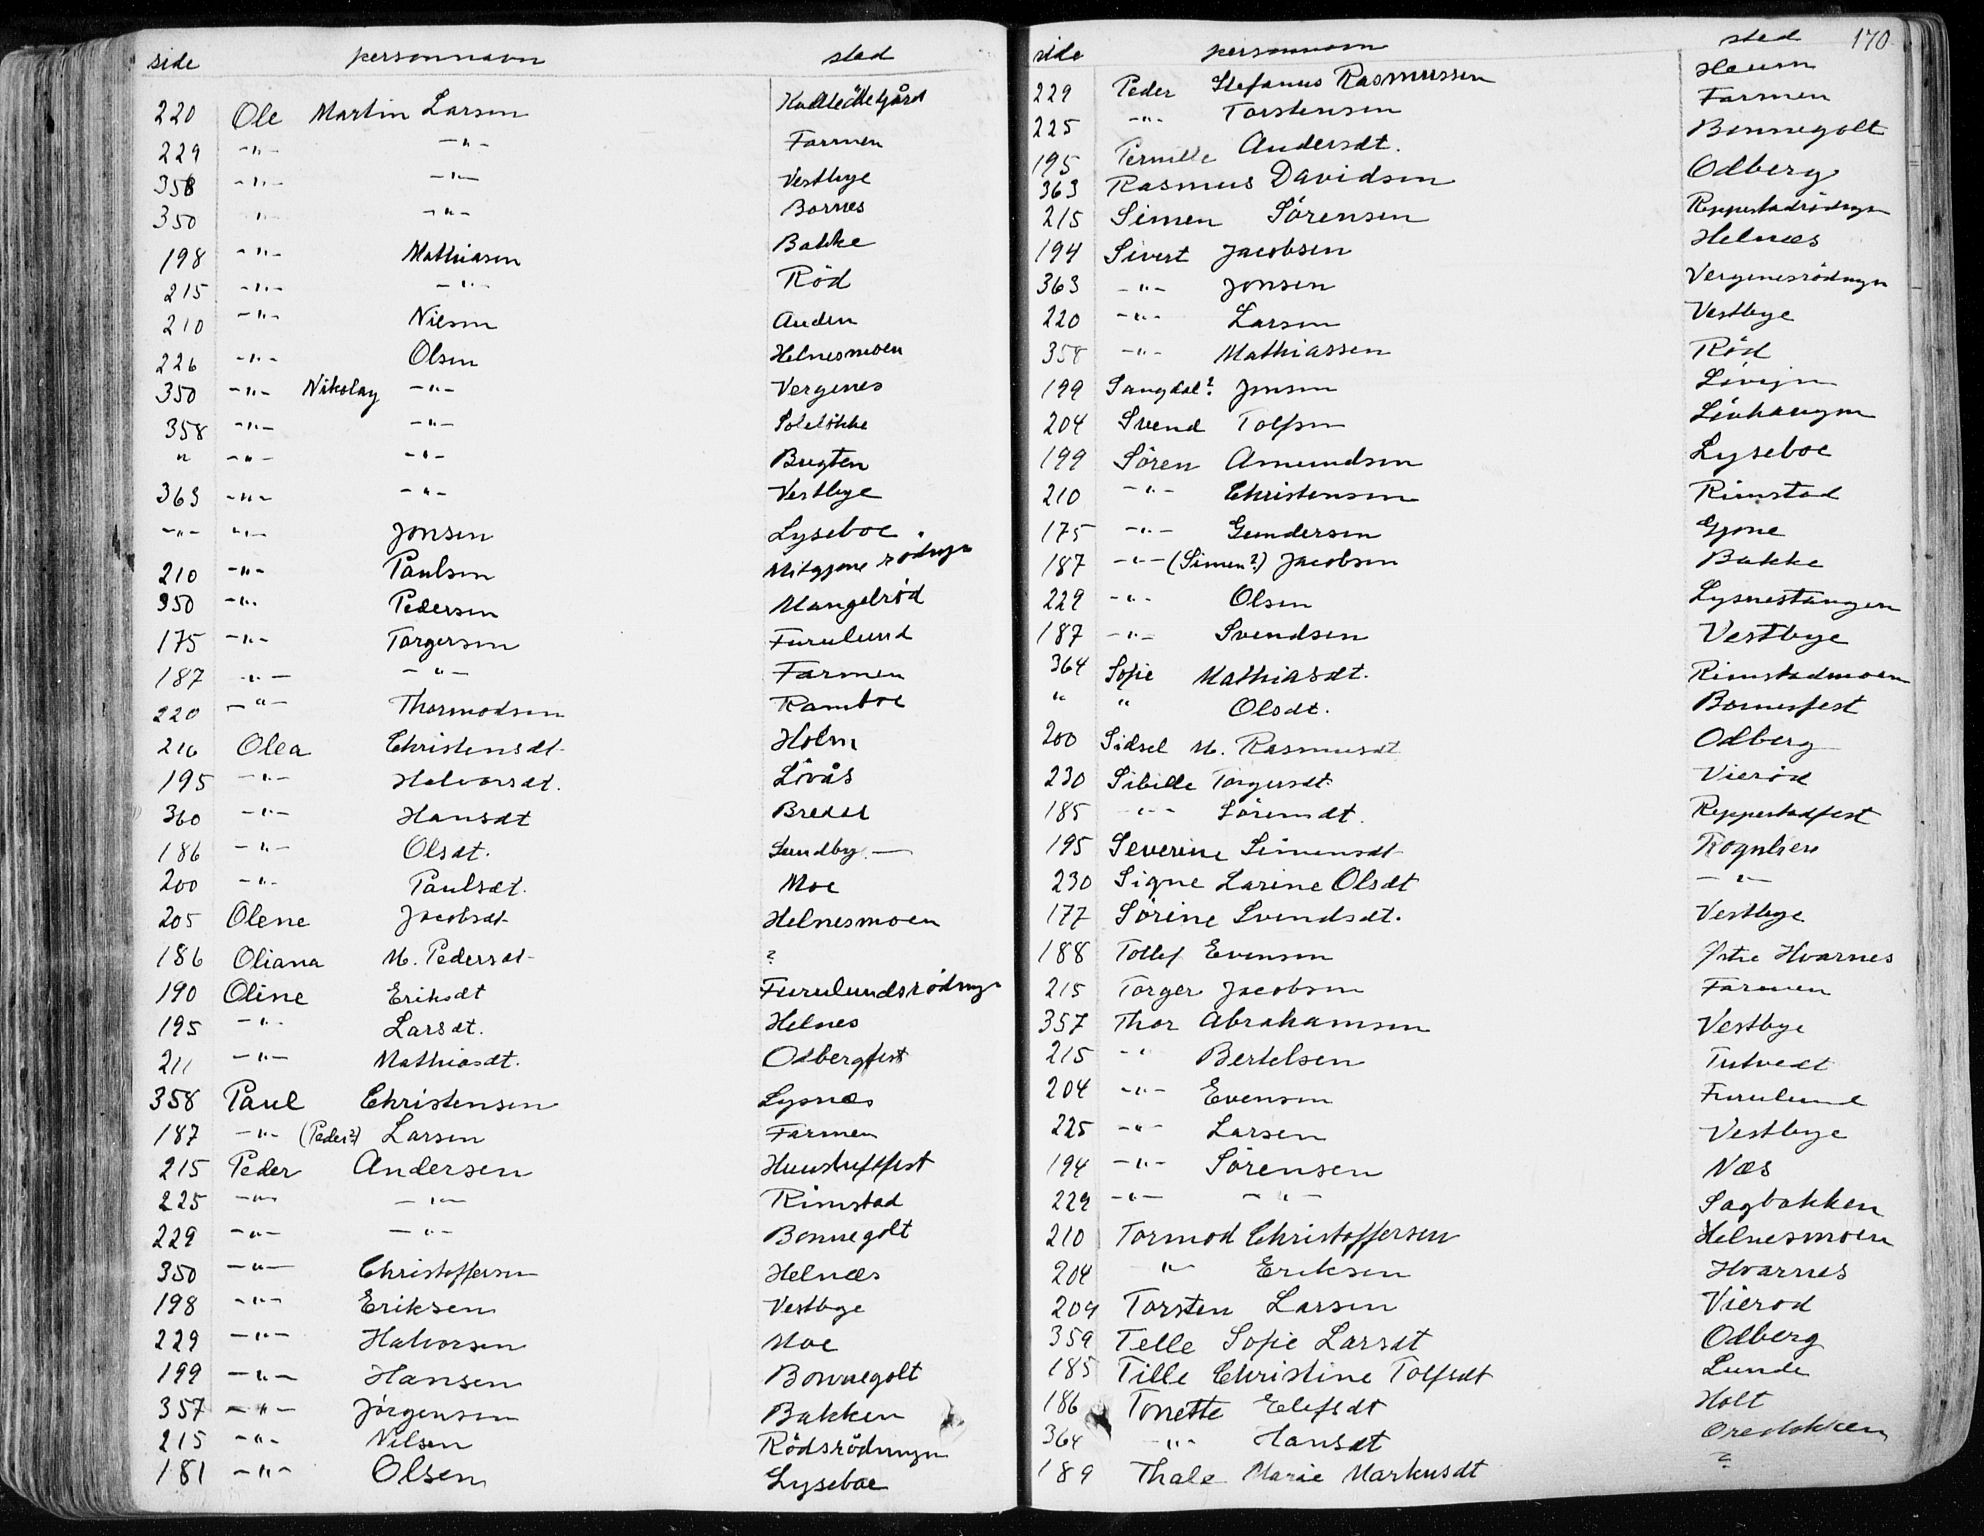 side personnavn sted
220 Ole Martin Larsen
229 -"- -"- Farmen
358 -"- -"- Vestbye
350 -"- -"- Bornes
198 -"- Mathiasen Bakke
215 -"- -"- Röd
210 -"- Nilsen Auden
226 -"- Olsen Helnesmoen
350 -"- Nikolay -"- Vergenes
358 -"- -"- Soleløkke
" -"- -"- Bugten
363 -"- -"- Vestbye
-"- -"- Jonsen Lyseboe
210 -"- Paulsen Mitgjone rödnge
350 -"- Pedersen Mangelröd
175 -"- Torgersen Furulund
187 -"- -"- Farmen
220 -"- Thormodsen Ramboe
216 Olea Christensdt Holm
195 -"- Halvorsdt. Lövås
360 -"- Hansdt Bredal
186 -"- Olsdt. Sundby —
200 -"- Paulsdt. Moe
205 Olene Jacobsdt Helnesmoen
186 Oliana M. Pedersdt ?
190 Oline Eriksdt Furulundsrödnge
195 -"- Larsdt. Helnes
211 -"- Mathiasdt. Odbergfest
358 Paul Christensen Lysnæs
187 -"- (Peder?) Larsen Farmen
215 Peder Andersen
225 -"- -"- Rimstad
229 -"- -"- Bonnegolt
350 -"- Christoffersen Helnæs
198 -"- Eriksen Vestbye
229 -"- Halvorsen Moe
199 -"- Hansen Bonnegolt
357 -"- Jörgensen Bakken
215 -"- Nilsen Rödsrödningen
181 -"- Olsen Lyseboe
170
side personnavn sted
229 Peder Stefanus Rasmussen Haum
225 -"- Torstensen Farmen
195 Pernille Andersdt. Bonnegolt
363 Rasmus Davidsen Odberg
215 Simen Sörensen Reppestadrödnge
194 Sivert Jacobsen Helnæs
363 -"- Jonsen Vergenesrödnge
220 -"- Larsen Vestbye
358 -"- Mathiassen Röd
199 Sangdal? Jonsen
204 Svend Tolfsen Lövhaugen
199 Sören Amundsen Lyseboe
210 -"- Christensen Rimstad
175 -"- Gundersen Gjone
187 -"- (Simen?) Jacobsen Bakke
229 -"- Olsen Lysnestangen
187 -"- Svendsen Vestbye
364 Sofie Mathiasdt. Rimstadmoen
" " Olsdt. Bornesfest
200 Sidsel M. Rasmusdt Odberg
230 Sibille Torgersdt Vieröd
185 -"- Sörensdt. Reppestadfest
195 Severine Simensdt Rognlien
230 Signe Larine Olsdt -"-
177 Sörine Svendsdt. Vestbye
188 Tollef Evensen Østre Hvarnes
215 Torger Jacobsen Farmen
357 Thor Abrahamsen Vestbye
215 -"- Bertelsen Tutvedt
204 -"- Evensen Furulund
225 -"- Larsen Vestbye
194 -"- Sörensen Næs
229 -"- -"- Sagbakken
210 Tormod Christoffersen Helnesmoen
204 " Eriksen Hvarnes
204 Torsten Larsen Vieröd
359 Telle Sofie Larsdt Odberg
185 Tille Christine Tolfsdt Lunde
186 Tonette Elefsdt Holt
364 -"- Hansdt Orelökken
189 Thale Marie Markusdt ?